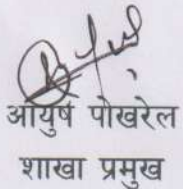 आयुष पोखरेल
शाखा प्रमुख